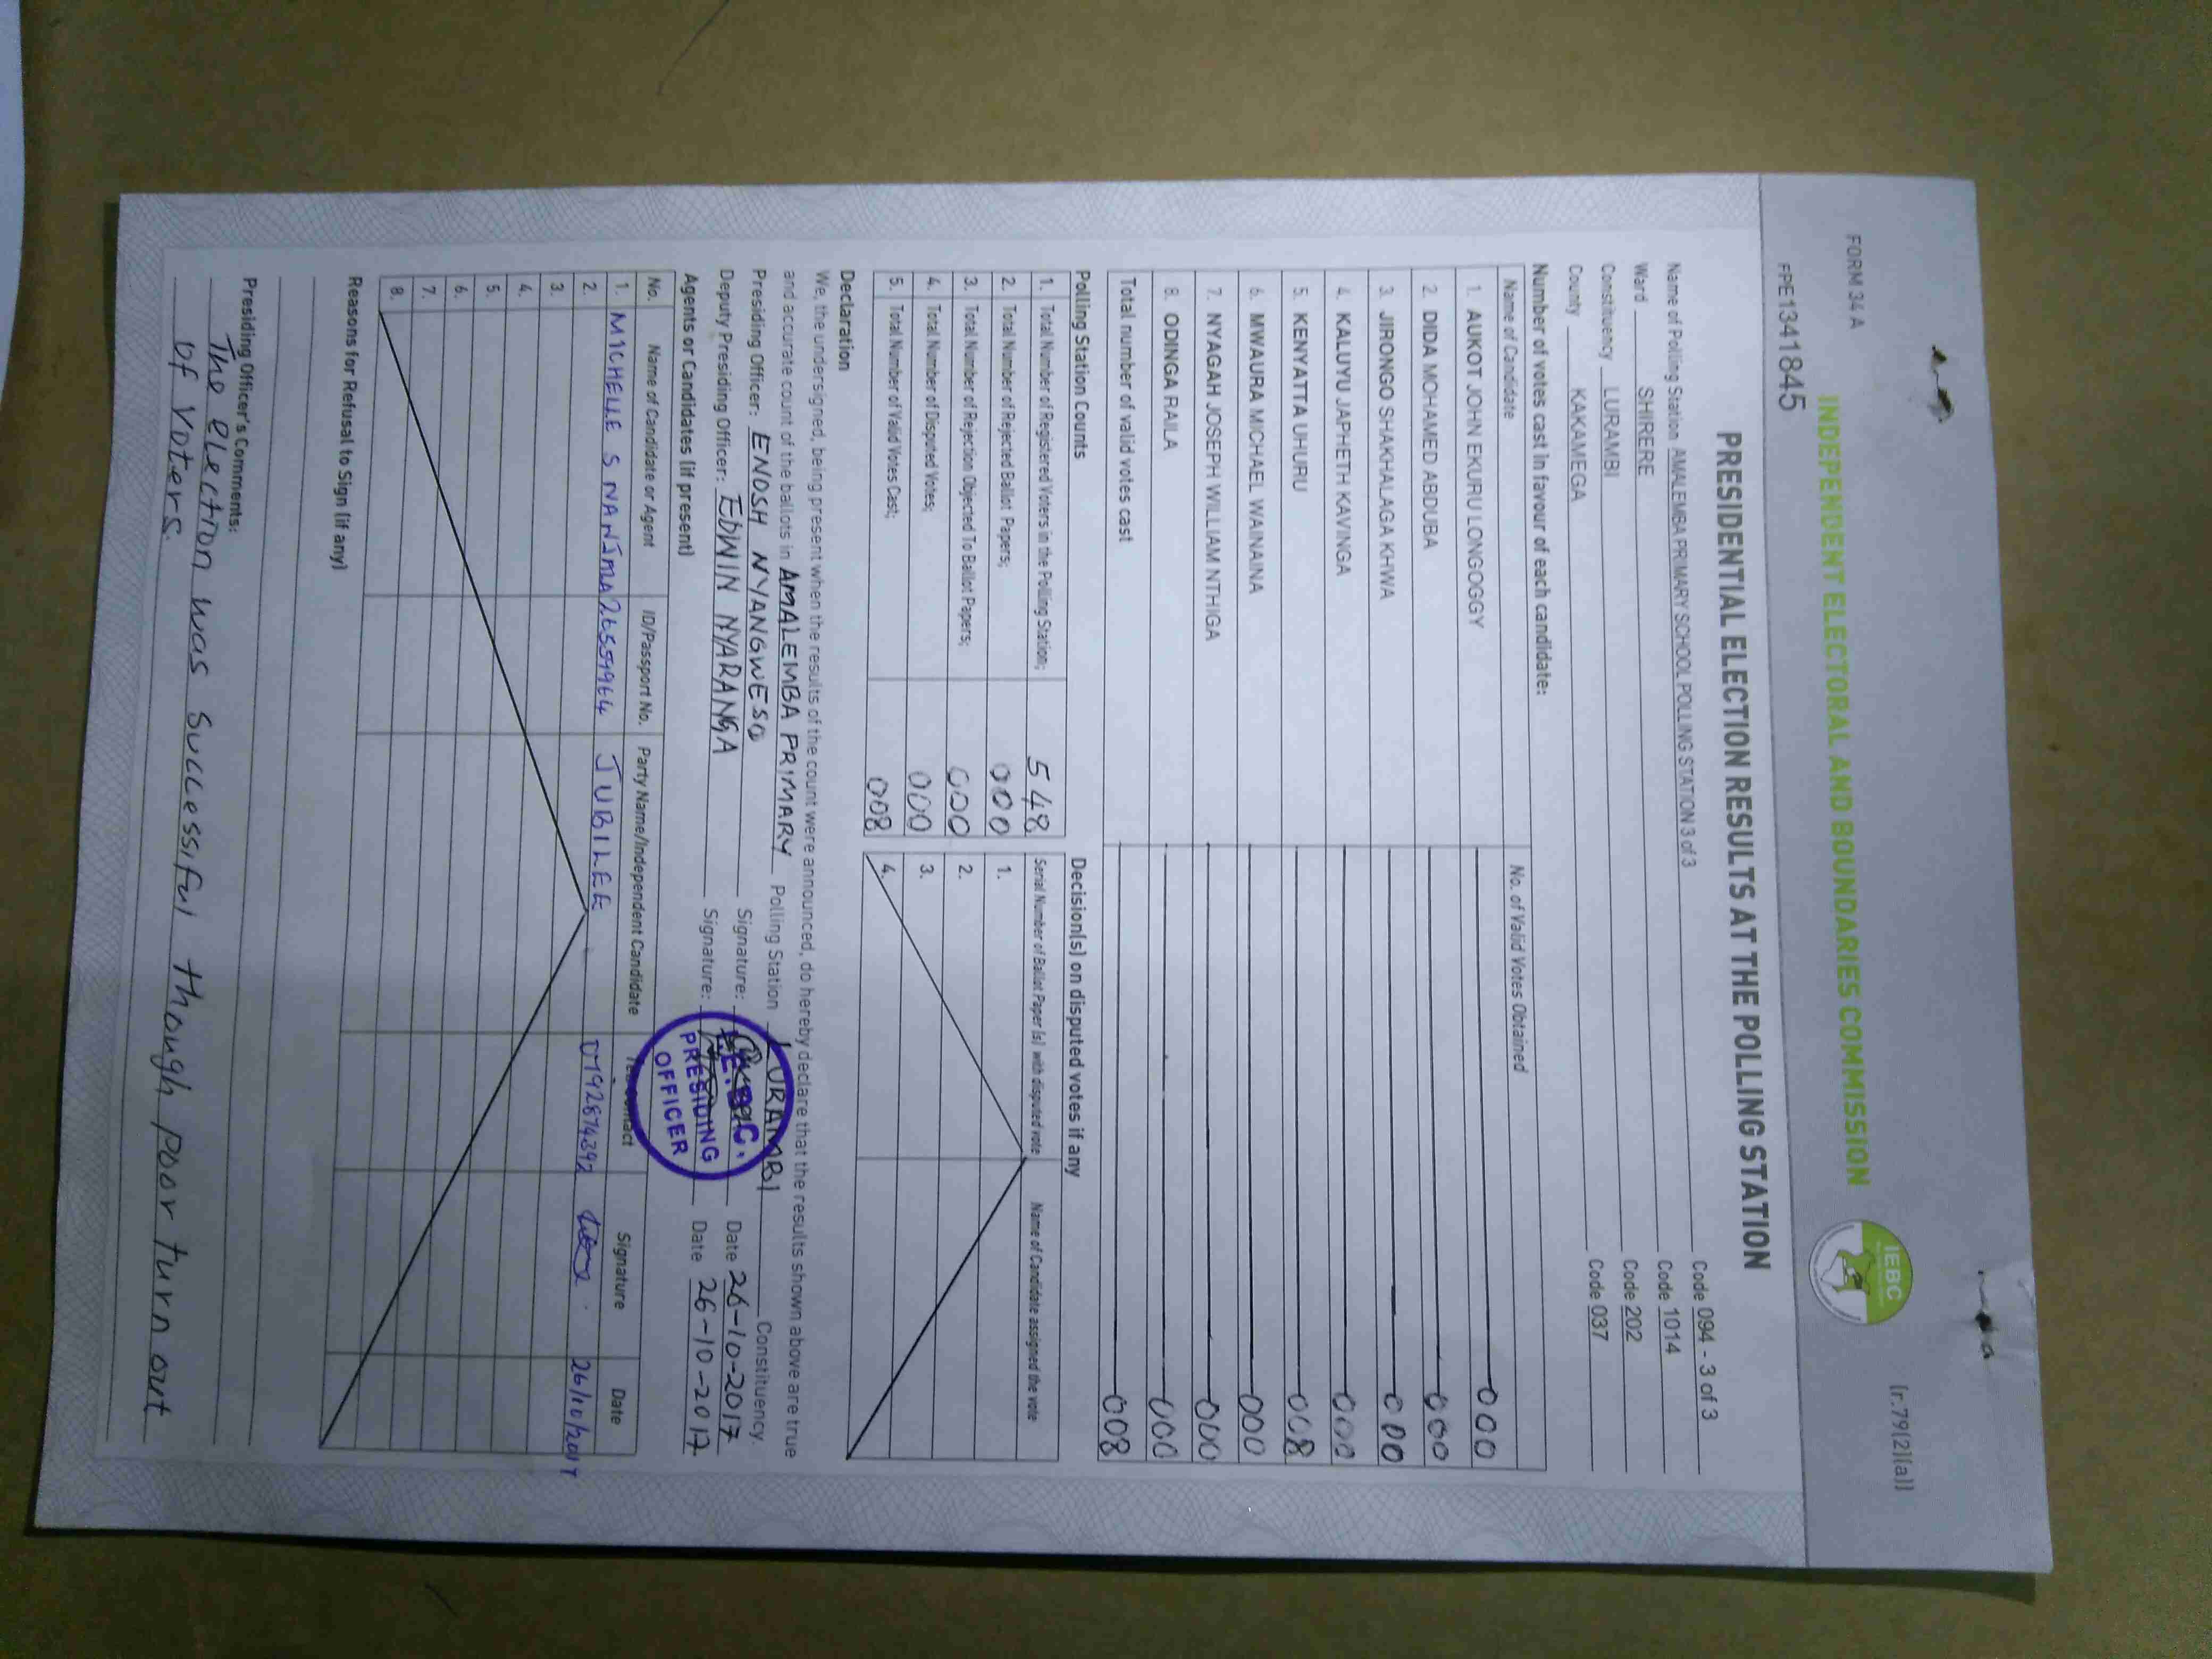 FORM 34 A
[r.79(2)(a)]
INDEPENDENT ELECTORAL AND BOUNDARIES COMMISSION
IEBC
FPE1341845
PRESIDENTIAL ELECTION RESULTS AT THE POLLING STATION
Name of Polling Station AMALEMBA PRIMARY SCHOOL POLLING STATION 3 of 3 Code 094 - 3 of 3
Ward SHIRERE Code 1014
Constituency LURAMBI Code 202
County KAKAMEGA Code 037
Number of votes cast in favour of each candidate:
Name of Candidate No. of Valid Votes Obtained
1. AUKOT JOHN EKURU LONGOGGY 000
2. DIDA MOHAMED ABDUBA 000
3. JIRONGO SHAKHALAGA KHWA 000
4. KALUYU JAPHETH KAVINGA 000
5. KENYATTA UHURU 008
6. MWAURA MICHAEL WAINAINA 000
7. NYAGAH JOSEPH WILLIAM NTHIGA 000
8. ODINGA RAILA 000
Total number of valid votes cast 008
Polling Station Counts Decision(s) on disputed votes if any
1. Total Number of Registered Voters in the Polling Station; 548 Serial Number of Ballot Paper (s) with disputed vote Name of Candidate assigned the vote
2. Total Number of Rejected Ballot Papers; 000 1.
3. Total Number of Rejection Objected To Ballot Papers; 000 2.
4. Total Number of Disputed Votes; 000 3.
5. Total Number of Valid Votes Cast; 008 4.
Declaration
We, the undersigned, being present when the results of the count were announced, do hereby declare that the results shown above are true
and accurate count of the ballots in AMALEMBA PRIMARY Polling Station LURAMBI Constituency.
Presiding Officer: ENOSH NYANGWESO Signature: Date 26-10-2017
Deputy Presiding Officer: EDWIN NYARANGA Signature: Date 26-10-2017
I.E.B.C.
PRESIDING
OFFICER
Agents or Candidates (if present)
No. Name of Candidate or Agent ID/Passport No. Party Name/Independent Candidate Tel. Contact Signature Date
1. MICHELLE S NANJMA 26559964 JUBILEE 0792874392 26/10/2017
2.
3.
4.
5.
6.
7.
8.
Reasons for Refusal to Sign (if any)
Presiding Officer's Comments:
The election was successful though poor turn out
of voters.